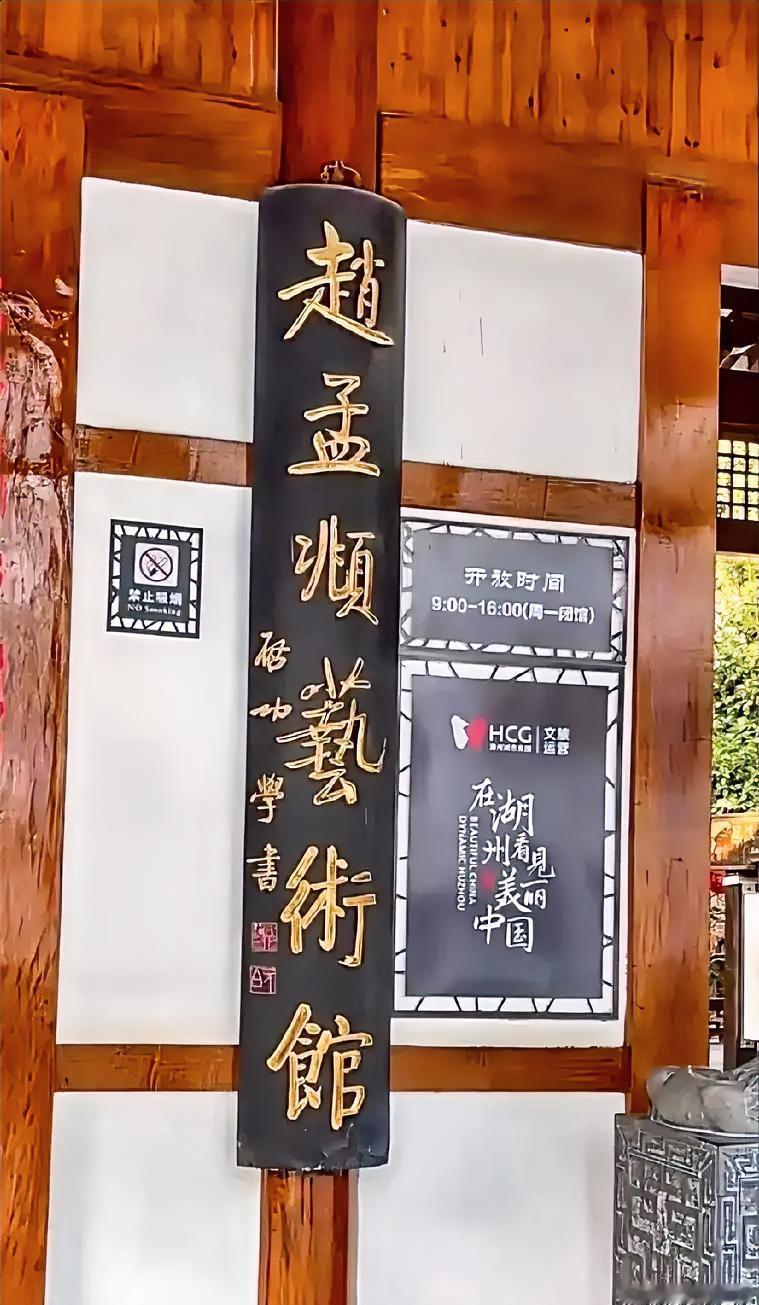 趙孟頫藝術館
啟功學書
禁止吸烟
NO Smoking
开放时间
9:00-16:00(周一闭馆)
HCG
文旅
运营
在湖州看见美丽中国
BEAUTIFUL CHINA
DYNAMIC HUZHOU